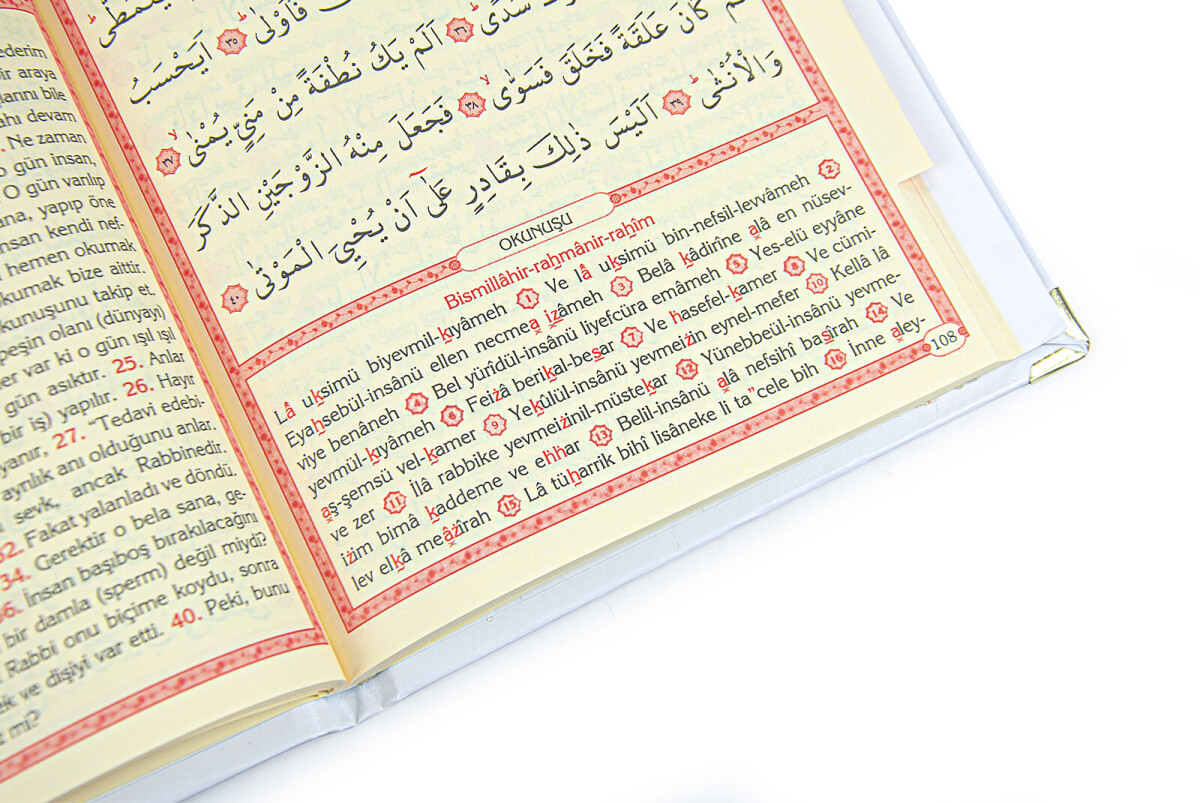 ederim
bir araya
larını bile
ahı devam
Ne zaman
o gün insan,
O gün varılıp
ana, yapıp öne
insan kendi nef-
hemen okumak
okumak bize aittir.
kunuşunu takip et.
peşin olanı (dünyayı)
er var ki o gün ışıl ışıl
gün asıktır. 25. Anlar
bir iş) yapılır. 26. Hayır
yanır, 27. “Tedavi edebi-
ayrılık anı olduğunu anlar.
sevk, ancak Rabbinedir.
32. Fakat yalanladı ve döndü.
34. Gerektir o bela sana, ge-
36. İnsan başıboş bırakılacağını
bir damla (sperm) değil miydi?
Rabbi onu biçime koydu, sonra
ek ve dişiyi var etti. 40. Peki, bunu
z mi?
يَتَمَطّٰىۜ
فَاَوْلٰىۜ ﴿٣٥﴾ اَيَحْسَبُ
سُدًىۜ ﴿٣٦﴾ اَلَمْ يَكُ نُطْفَةً مِنْ مَنِيٍّ يُمْنٰىۙ ﴿٣٧﴾
كَانَ عَلَقَةً فَخَلَقَ فَسَوّٰىۙ ﴿٣٨﴾ فَجَعَلَ مِنْهُ الزَّوْجَيْنِ الذَّكَرَ
وَالْاُنْثٰىۜ ﴿٣٩﴾ اَلَيْسَ ذٰلِكَ بِقَادِرٍ عَلٰٓى اَنْ يُحْيِيَ الْمَوْتٰى ﴿٤٠﴾
OKUNUŞU
Bismillâhir-rahmânir-rahîm
Lâ uksimü biyevmil-kıyâmeh 1 Ve lâ uksimü bin-nefsil-levvâmeh 2
Eyahsebül-insânü ellen necmea izâmeh 3 Belâ kâdirîne alâ en nüsev-
viye benâneh 4 Bel yürîdül-insânü liyefcüra emâmeh 5 Yes-elü eyyâne
yevmül-kıyâmeh 6 Feizâ berikal-besar 7 Ve hasefel-kamer 8 Ve cümi-
aş-şemsü vel-kamer 9 Yekûlül-insânü yevmeizin eynel-mefer 10 Kellâ lâ
ve zer 11 İlâ rabbike yevmeizinil-müstekar 12 Yünebbeül-insânü yevme-
izim bimâ kaddeme ve ehhar 13 Belil-insânü alâ nefsihî basîrah 14 Ve
lev elkâ meâzîrah 15 Lâ tüharrik bihî lisâneke li ta”cele bih 16 İnne aley-
108